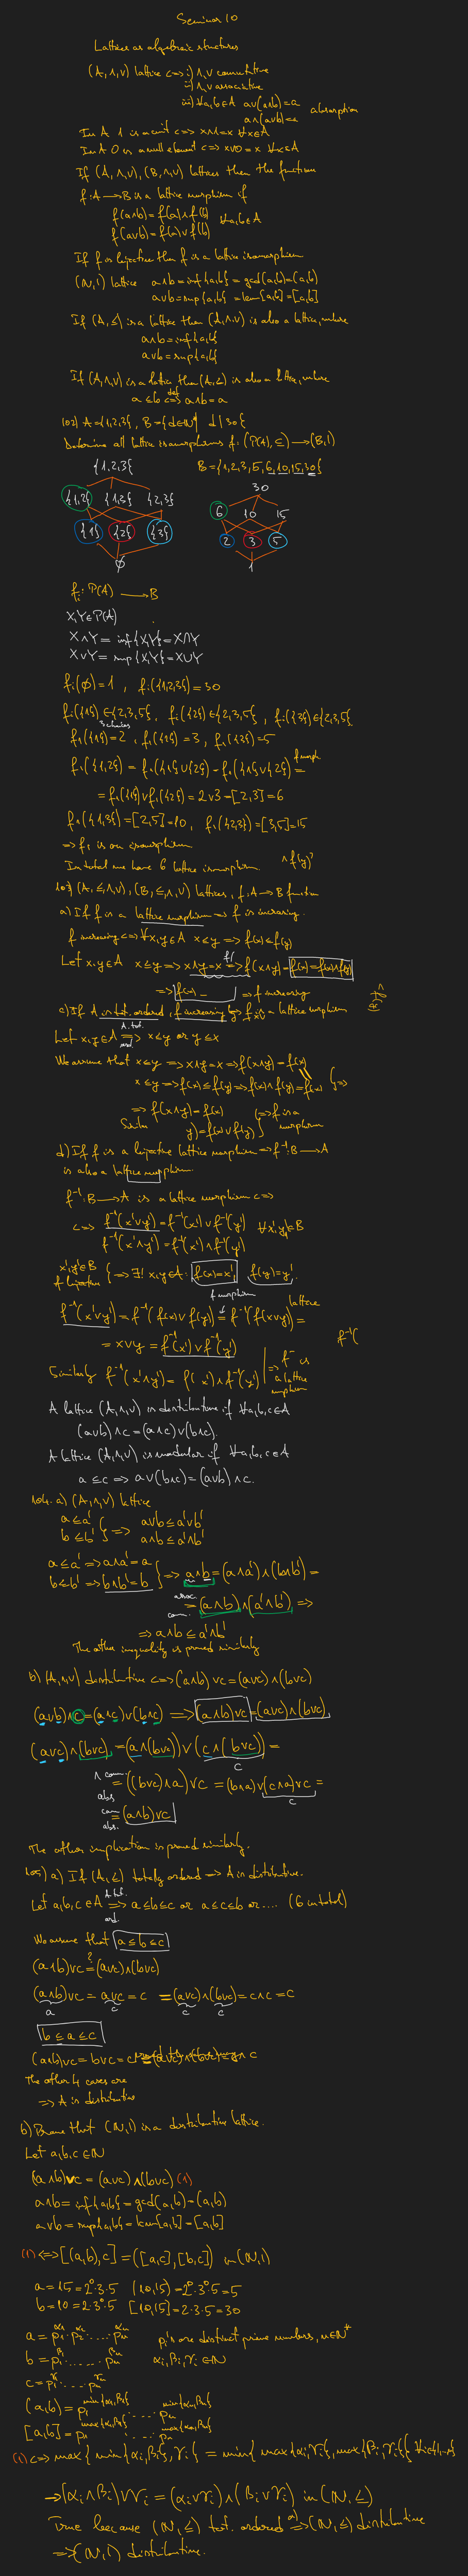 Seminar 10
Lattices as algebraic structures
(A,∧,∨) lattice <=> i) ∧,∨ commutative
ii) ∧,∨ associative
iii) ∀a,b∈A a∨(a∧b)=a
a∧(a∨b)=a absorption
In A 1 is a unit <=> x∧1=x ∀x∈A
In A 0 is a null element <=> x∨0=x ∀x∈A
If (A,∧,∨), (B,∧,∨) lattices then the function
f:A→B is a lattice morphism if
f(a∧b)=f(a)∧f(b) ∀a,b∈A
f(a∨b)=f(a)∨f(b)
If f is bijective then f is a lattice isomorphism
(ℕ,|) lattice a∧b=inf{a,b}=gcd(a,b)=(a,b)
a∨b=sup{a,b}=lcm[a,b]=[a,b]
If (A,≤) is a lattice then (A,∧,∨) is also a lattice, where
a∧b=inf{a,b}
a∨b=sup{a,b}
If (A,∧,∨) is a lattice then (A,≤) is also a lattice, where
a≤b <=>def a∧b=a
102) A={1,2,3}, B={d∈ℕ* | d|30}
Determine all lattice isomorphisms fi:(P(A),⊆)→(B,|)
{1,2,3} B={1,2,3,5,6,10,15,30}
30
{1,2} {1,3} {2,3} 6 10 15
{1} {2} {3} 2 3 5
∅ 1
fi: P(A) → B
X,Y∈P(A)
X∧Y = inf{X,Y}=X∩Y
X∨Y = sup{X,Y}=X∪Y
fi(∅)=1, fi({1,2,3})=30
fi({1})∈{2,3,5}, fi({2})∈{2,3,5}, fi({3})∈{2,3,5}
3 choices
f1({1})=2, f1({2})=3, f1({3})=5
f1({1,2})=f1({1}∪{2})=f1({1}∨{2}) f morph =
=f1({1})∨f1({2})=2∨3=[2,3]=6
f1({1,3})=[2,5]=10, f1({2,3})=[3,5]=15
=> f1 is an isomorphism
In total we have 6 lattice isomorphism. ∧f(y)?
103) (A,≤,∧,∨), (B,≤,∧,∨) lattices, f:A→B function
a) If f is a lattice morphism => f is increasing.
f increasing <=> ∀x,y∈A x≤y => f(x)≤f(y)
Let x,y∈A x≤y => x∧y=x =>f( f(x∧y)=f(x)=f(x)∧f(y)
=> f(x) => f increasing
c) If A is tot. ordered, f increasing => f is a lattice morphism
Let x,y∈A A tot. ord. => x≤y or y≤x
We assume that x≤y => x∧y=x => f(x∧y)=f(x)
x≤y => f(x)≤f(y) => f(x)∧f(y)=f(x) } =>
=> f(x∧y)=f(x)
Similar y)=f(x)∨f(y) } => f is a morphism
d) If f is a bijective lattice morphism => f⁻¹:B→A
is also a lattice morphism.
f⁻¹:B→A is a lattice morphism <=>
<=> f⁻¹(x'∨y')=f⁻¹(x')∨f⁻¹(y') ∀x',y'∈B
f⁻¹(x'∧y')=f⁻¹(x')∧f⁻¹(y')
x',y'∈B
f bijective } => ∃! x,y∈A: f(x)=x', f(y)=y'.
f morphism lattice
f⁻¹(x'∨y')=f⁻¹(f(x)∨f(y))=f⁻¹(f(x∨y))=
=x∨y=f⁻¹(x')∨f⁻¹(y') f⁻¹(
Similarly f⁻¹(x'∧y')=f( x')∧f⁻¹(y') | => f⁻ is a lattice morphism
A lattice (A,∧,∨) is distributive if ∀a,b,c∈A
(a∨b)∧c=(a∧c)∨(b∧c).
A lattice (A,∧,∨) is modular if ∀a,b,c∈A
a≤c => a∨(b∧c)=(a∨b)∧c.
104. a) (A,∧,∨) lattice
a≤a'
b≤b' } => a∨b≤a'∨b'
a∧b≤a'∧b'
a≤a' => a∧a'=a
b≤b' => b∧b'=b } => a∧b=(a∧a')∧(b∧b')=
assoc com. =(a∧b)∧(a'∧b') =>
=> a∧b≤a'∧b'
The other inequality is proved similarly
b) (A,∧,∨) distributive <=> (a∧b)∨c=(a∨c)∧(b∨c)
(a∨b)∧c=(a∧c)∨(b∧c) => (a∧b)∨c=(a∨c)∧(b∨c)
(a∨c)∧(b∨c)=(a∧(b∨c))∨(c∧(b∨c))=
c
∧ com. abs =((b∨c)∧a)∨c=(b∧a)∨(c∧a)∨c=
c
com abs. =(a∧b)∨c
The other implication is proved similarly.
105) a) If (A,≤) totally ordered => A is distributive.
Let a,b,c∈A A tot. ord => a≤b≤c or a≤c≤b or .... (6 in total)
We assume that a≤b≤c
(a∧b)∨c ?= (a∨c)∧(b∨c)
(a∧b)∨c=a∨c=c =(a∨c)∧(b∨c)=c∧c=c
a c c c
b≤a≤c
(a∧b)∨c=b∨c=c
The other 4 cases are
=> A is distributive
b) Prove that (ℕ,|) is a distributive lattice.
Let a,b,c∈ℕ
(a∧b)∨c=(a∨c)∧(b∨c) (1)
a∧b=inf{a,b}=gcd(a,b)=(a,b)
a∨b=sup{a,b}=lcm[a,b]=[a,b]
(1) <=> [(a,b),c]=([a,c],[b,c]) in (ℕ,|)
a=15=2⁰·3·5 (10,15)=2⁰·3⁰·5=5
b=10=2·3⁰·5 [10,15]=2·3·5=30
a=p₁^α₁·p₂^α₂·....·pₙ^αₙ pi's are distinct prime numbers, n∈ℕ*
b=p₁^β₁......pₙ^βₙ αi,βi,γi∈ℕ
c=p₁^γ₁.....pₙ^γₙ
(a,b)=p₁^min{α₁,β₁}.....pₙ^min{αₙ,βₙ}
[a,b]=p₁^max{α₁,β₁}.....pₙ^max{αₙ,βₙ}
(1) <=> max{min{αi,βi},γi}=min{max{αi,γi},max{βi,γi}} ∀i∈{1..n}
→ (αi∧βi)∨γi=(αi∨γi)∧(βi∨γi) in (ℕ,≤)
True because (ℕ,≤) tot. ordered a)=> (ℕ,≤) distributive
=> (ℕ,|) distributive.